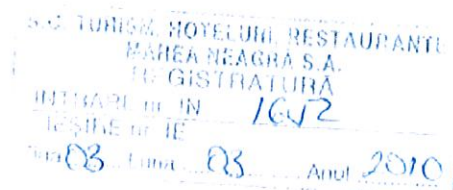 S.C. TURISM, HOTELURI, RESTAURANTE
MAREA NEAGRA S.A.
REGISTRATURĂ
INTRARE nr. IN
IEŞIRE nr. IE
Ziua 03 Luna 03 Anul 2010